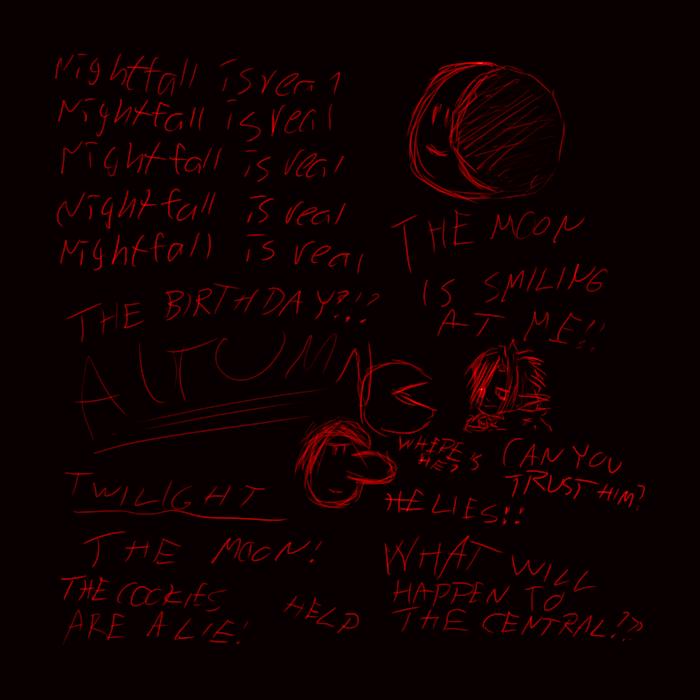 Nightfall is real
Nightfall is real
Nightfall is real
Nightfall is real
Nightfall is real
THE MOON
IS SMILING
AT ME!!
THE BIRTHDAY?!?
AUTUMN
WHERE
HE'S
CAN YOU
TRUST HIM?
HE LIES!!
TWILIGHT
THE MOON!
THE COOKIES
ARE A LIE!
HELP
WHAT WILL
HAPPEN TO
THE CENTRAL!?»